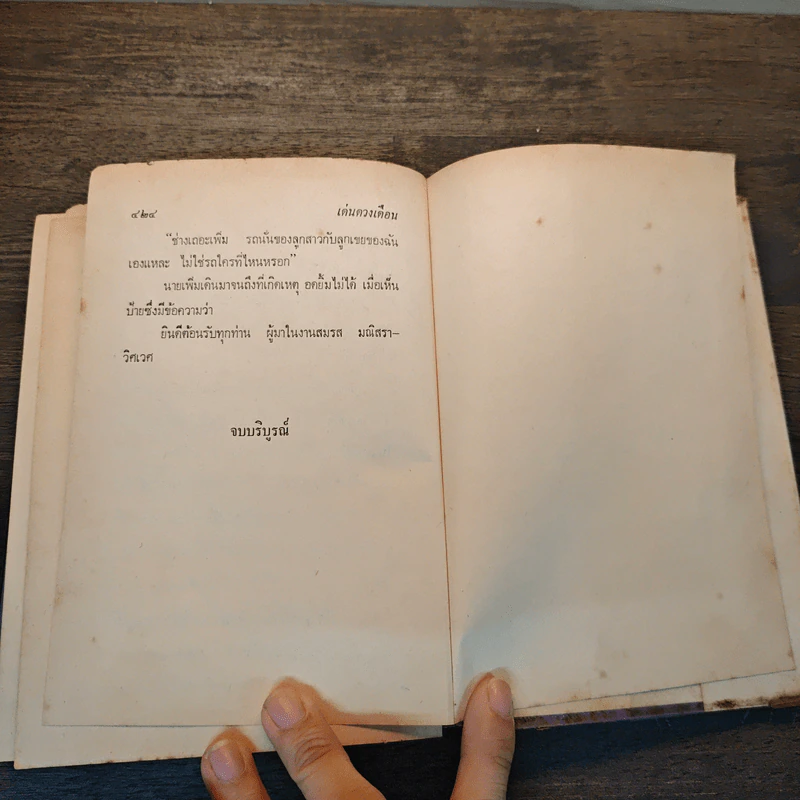 ๔๒๔ เด่นดวงเดือน
“ช่างเถอะเพิ่ม รถนั่นของลูกสาวกับลูกเขยของฉัน
เองแหละ ไม่ใช่รถใครที่ไหนหรอก”
นายเพิ่มเดินมาจนถึงที่เกิดเหตุ อดยิ้มไม่ได้ เมื่อเห็น
ป้ายซึ่งมีข้อความว่า
ยินดีต้อนรับทุกท่าน ผู้มาในงานสมรส มณิสรา–
วิศเวศ
จบบริบูรณ์